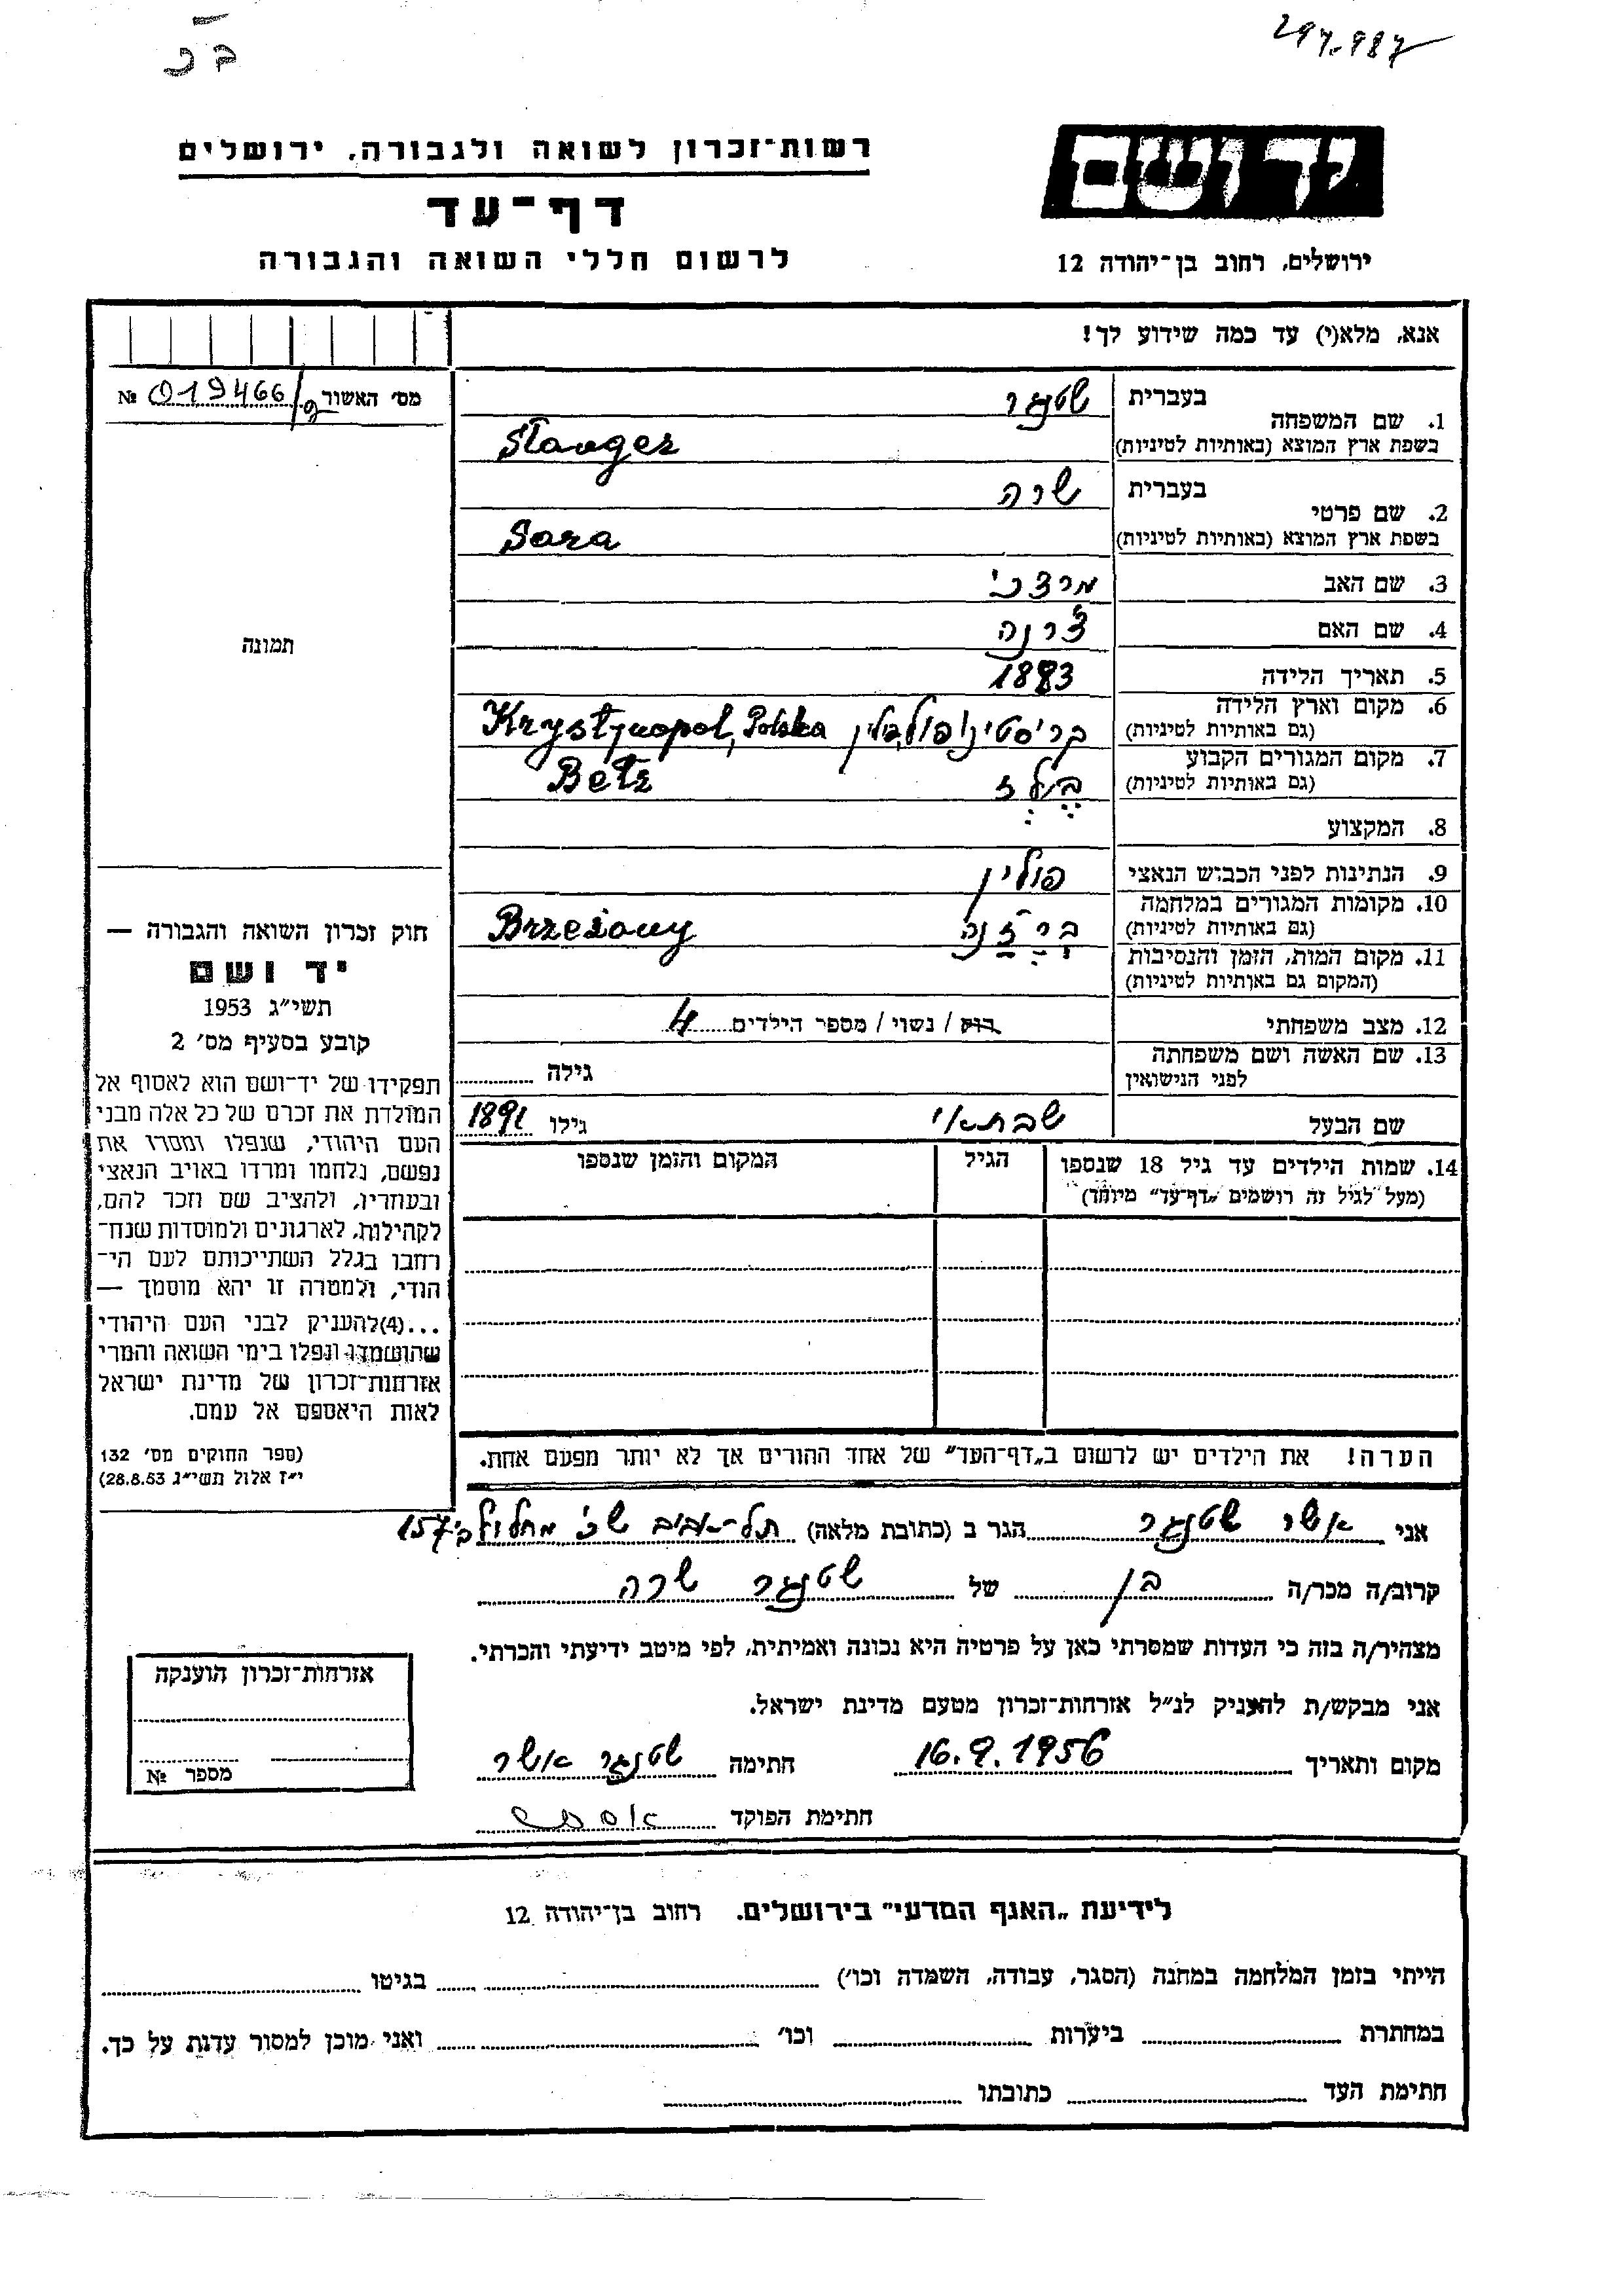 297.987
רשות־זכרון לשואה ולגבורה, ירושלים
דף־עד
לרשום חללי השואה והגבורה
יד ושם
ירושלים, רחוב בן־יהודה 12
אנא, מלא(י) עד כמה שידוע לך!
מס׳ האשור № 019466/
1. שם המשפחה
בעברית שטנגר
בשפת ארץ המוצא (באותיות לטיניות) Stanger
2. שם פרטי
בעברית שרה
בשפת ארץ המוצא (באותיות לטיניות) Sara
3. שם האב מרדכי
4. שם האם
5. תאריך הלידה 1883
6. מקום וארץ הלידה
(גם באותיות לטיניות) קריסטינופול, פולין Krystynopol, Polska
7. מקום המגורים הקבוע
(גם באותיות לטיניות) בעלז Bełz
8. המקצוע
9. הנתינות לפני הכבוש הנאצי פולין
10. מקומות המגורים במלחמה
(גם באותיות לטיניות) Brzeżany
11. מקום המות, הזמן והנסיבות
(המקום גם באותיות לטיניות)
12. מצב משפחתי רוק / נשוי / מספר הילדים 4
13. שם האשה ושם משפחתה
לפני הנישואין גילה
שם הבעל שבתאי גילו 1891
14. שמות הילדים עד גיל 18 שנספו
(מעל לגיל זה רושמים „דף־עד״ מיוחד)
הגיל
המקום והזמן שנספו
הערה! את הילדים יש לרשום ב„דף־העד״ של אחד ההורים אך לא יותר מפעם אחת.
תמונה
חוק זכרון השואה והגבורה —
יד ושם
תשי״ג 1953
קובע בסעיף מס׳ 2
תפקידו של יד־ושם הוא לאסוף אל
המולדת את זכרם של כל אלה מבני
העם היהודי, שנפלו ומסרו את
נפשם, נלחמו ומרדו באויב הנאצי
ובעוזריו, ולהציב שם וזכר להם,
לקהילות, לארגונים ולמוסדות שנח־
רחבו בגלל השתייכותם לעם הי־
הודי, ולמטרה זו יהא מוסמך —
...(4)להעניק לבני העם היהודי
שהושמדו ונפלו בימי השואה והמרי
אזרחות־זכרון של מדינת ישראל
לאות היאספם אל עמם.
(ספר החוקים מס׳ 132
י״ז אלול תשי״ג 28.8.53)
אני אשר שטנגר הגר ב (כתובת מלאה) תל-אביב שכ׳ מחלול 157
קרוב/ה מכר/ה בן של שטנגר שרה
מצהיר/ה בזה כי העדות שמסרתי כאן על פרטיה היא נכונה ואמיתית, לפי מיטב ידיעתי והכרתי.
אני מבקש/ת להעניק לנ״ל אזרחות־זכרון מטעם מדינת ישראל.
מקום ותאריך 16.9.1956 חתימה שטנגר אשר
חתימת הפוקד
אזרחות־זכרון הוענקה
מספר №
לידיעת „האגף המדעי״ בירושלים. רחוב בן־יהודה 12
הייתי בזמן המלחמה במחנה (הסגר, עבודה, השמדה וכו׳) בגיטו
במחתרת ביערות וכו׳ ואני מוכן למסור עדות על כך.
חתימת העד כתובתו